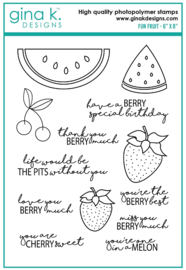 gina k.
DESIGNS
High quality photopolymer stamps
FUN FRUIT - 6" X 8"
have a BERRY
special birthday
thank you
BERRY much
life would be
THE PITS without you
love you
BERRY much
you're the
BERRY best
miss you
BERRY much
you are
CHERRY sweet
you're one
in a MELON